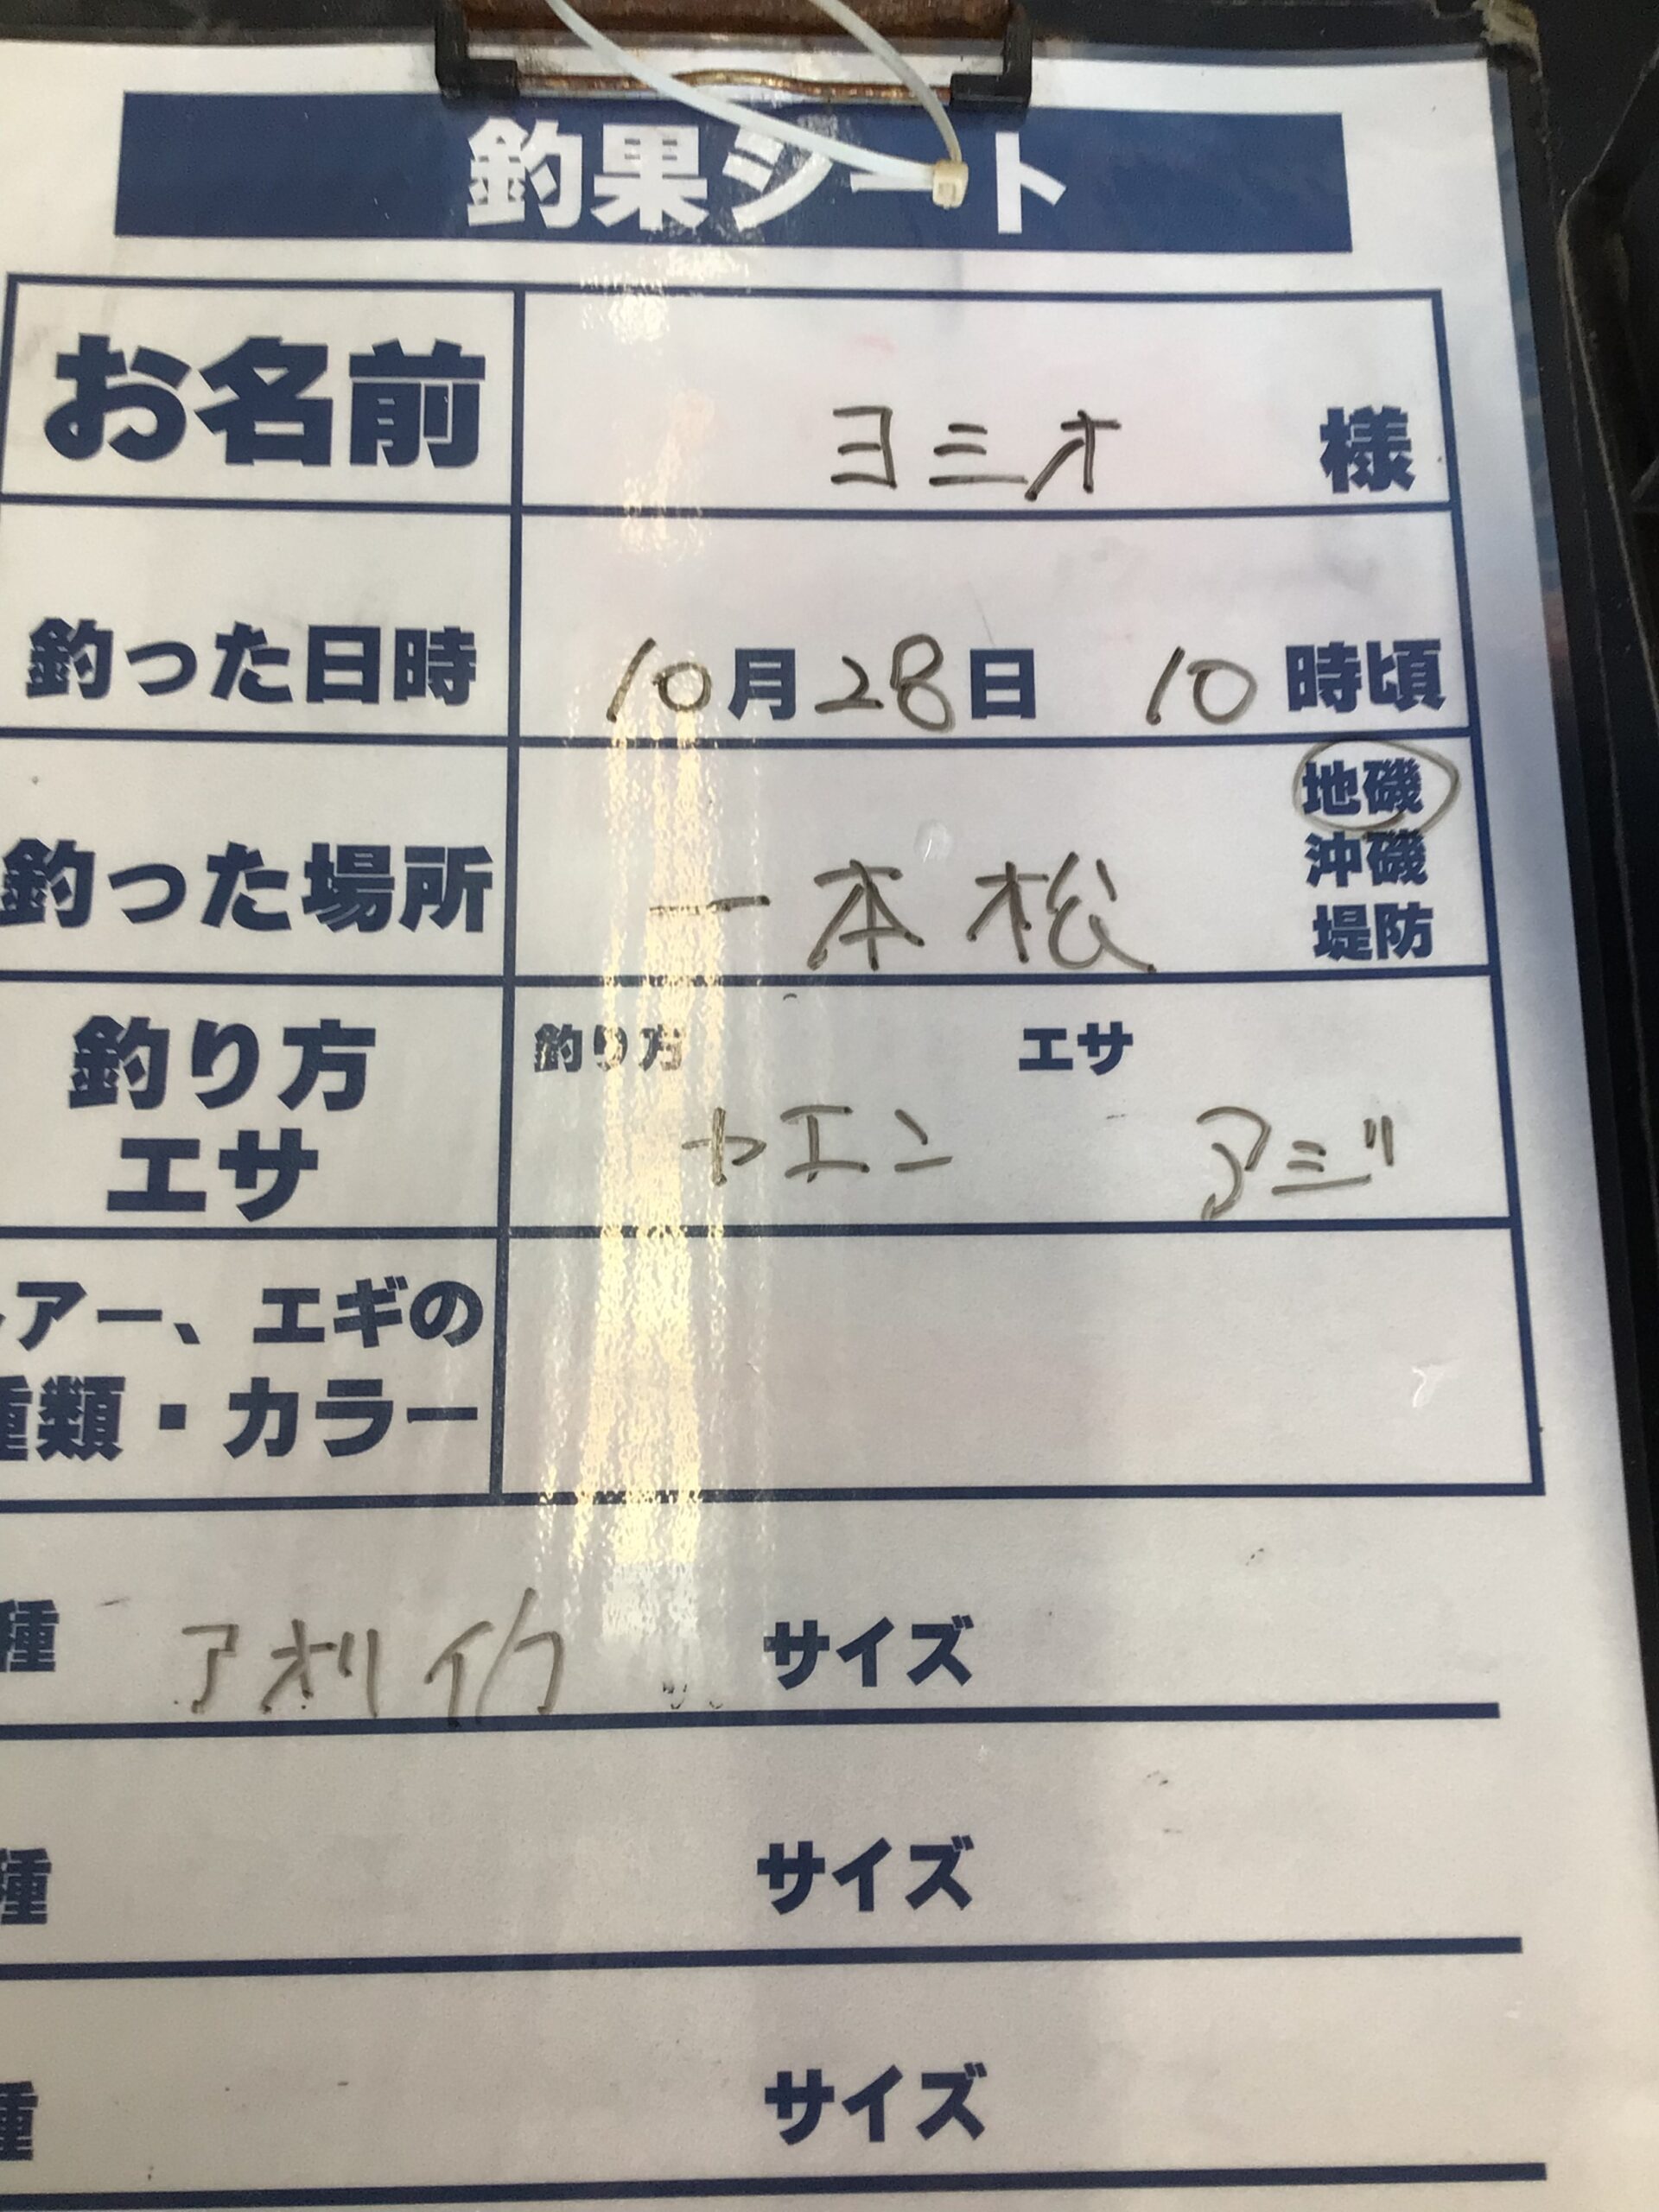 釣果シート
お名前 ヨミオ 様
釣った日時 10月28日 10時頃
釣った場所 一本松 地磯
沖磯
堤防
釣り方 エサ
釣り方 エサ
ヤエン アジ
アー、エギの
種類・カラー
種 アオリイカ サイズ
種 サイズ
種 サイズ